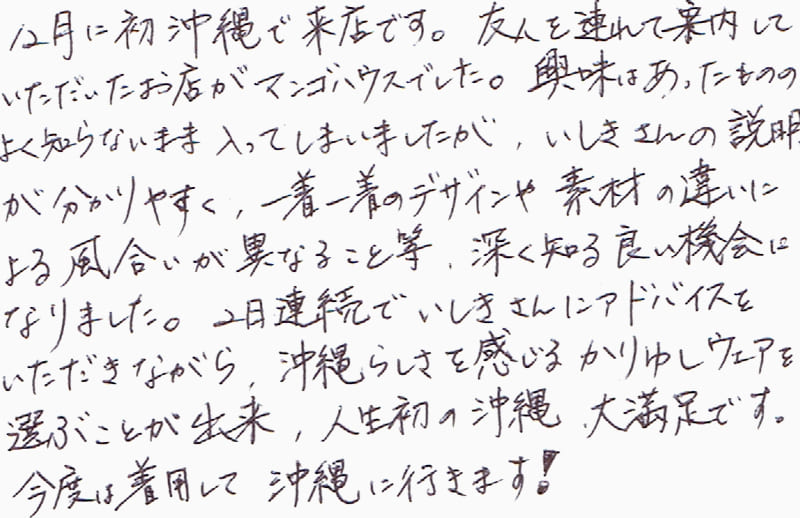 12月に初沖縄で来店です。友人を連れて案内して
いただいたお店がマンゴハウスでした。興味はあったものの
よく知らないまま入ってしまいましたが、いしきさんの説明
が分かりやすく、一着一着のデザインや素材の違いに
よる風合いが異なること等、深く知る良い機会に
なりました。2日連続でいしきさんにアドバイスを
いただきながら、沖縄らしさを感じるかりゆしウェアを
選ぶことが出来、人生初の沖縄、大満足です。
今度は着用して沖縄に行きます!